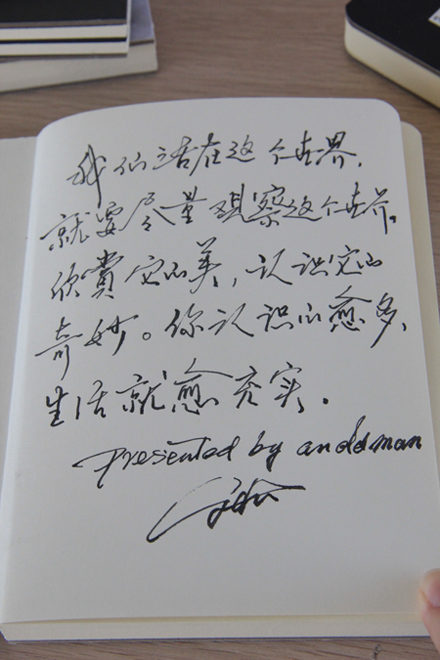 我们活在这个世界，
就要尽量观察这个世界，
欣赏它的美，认识它的
奇妙。你认识的愈多，
生活就愈充实。
Presented by anddman